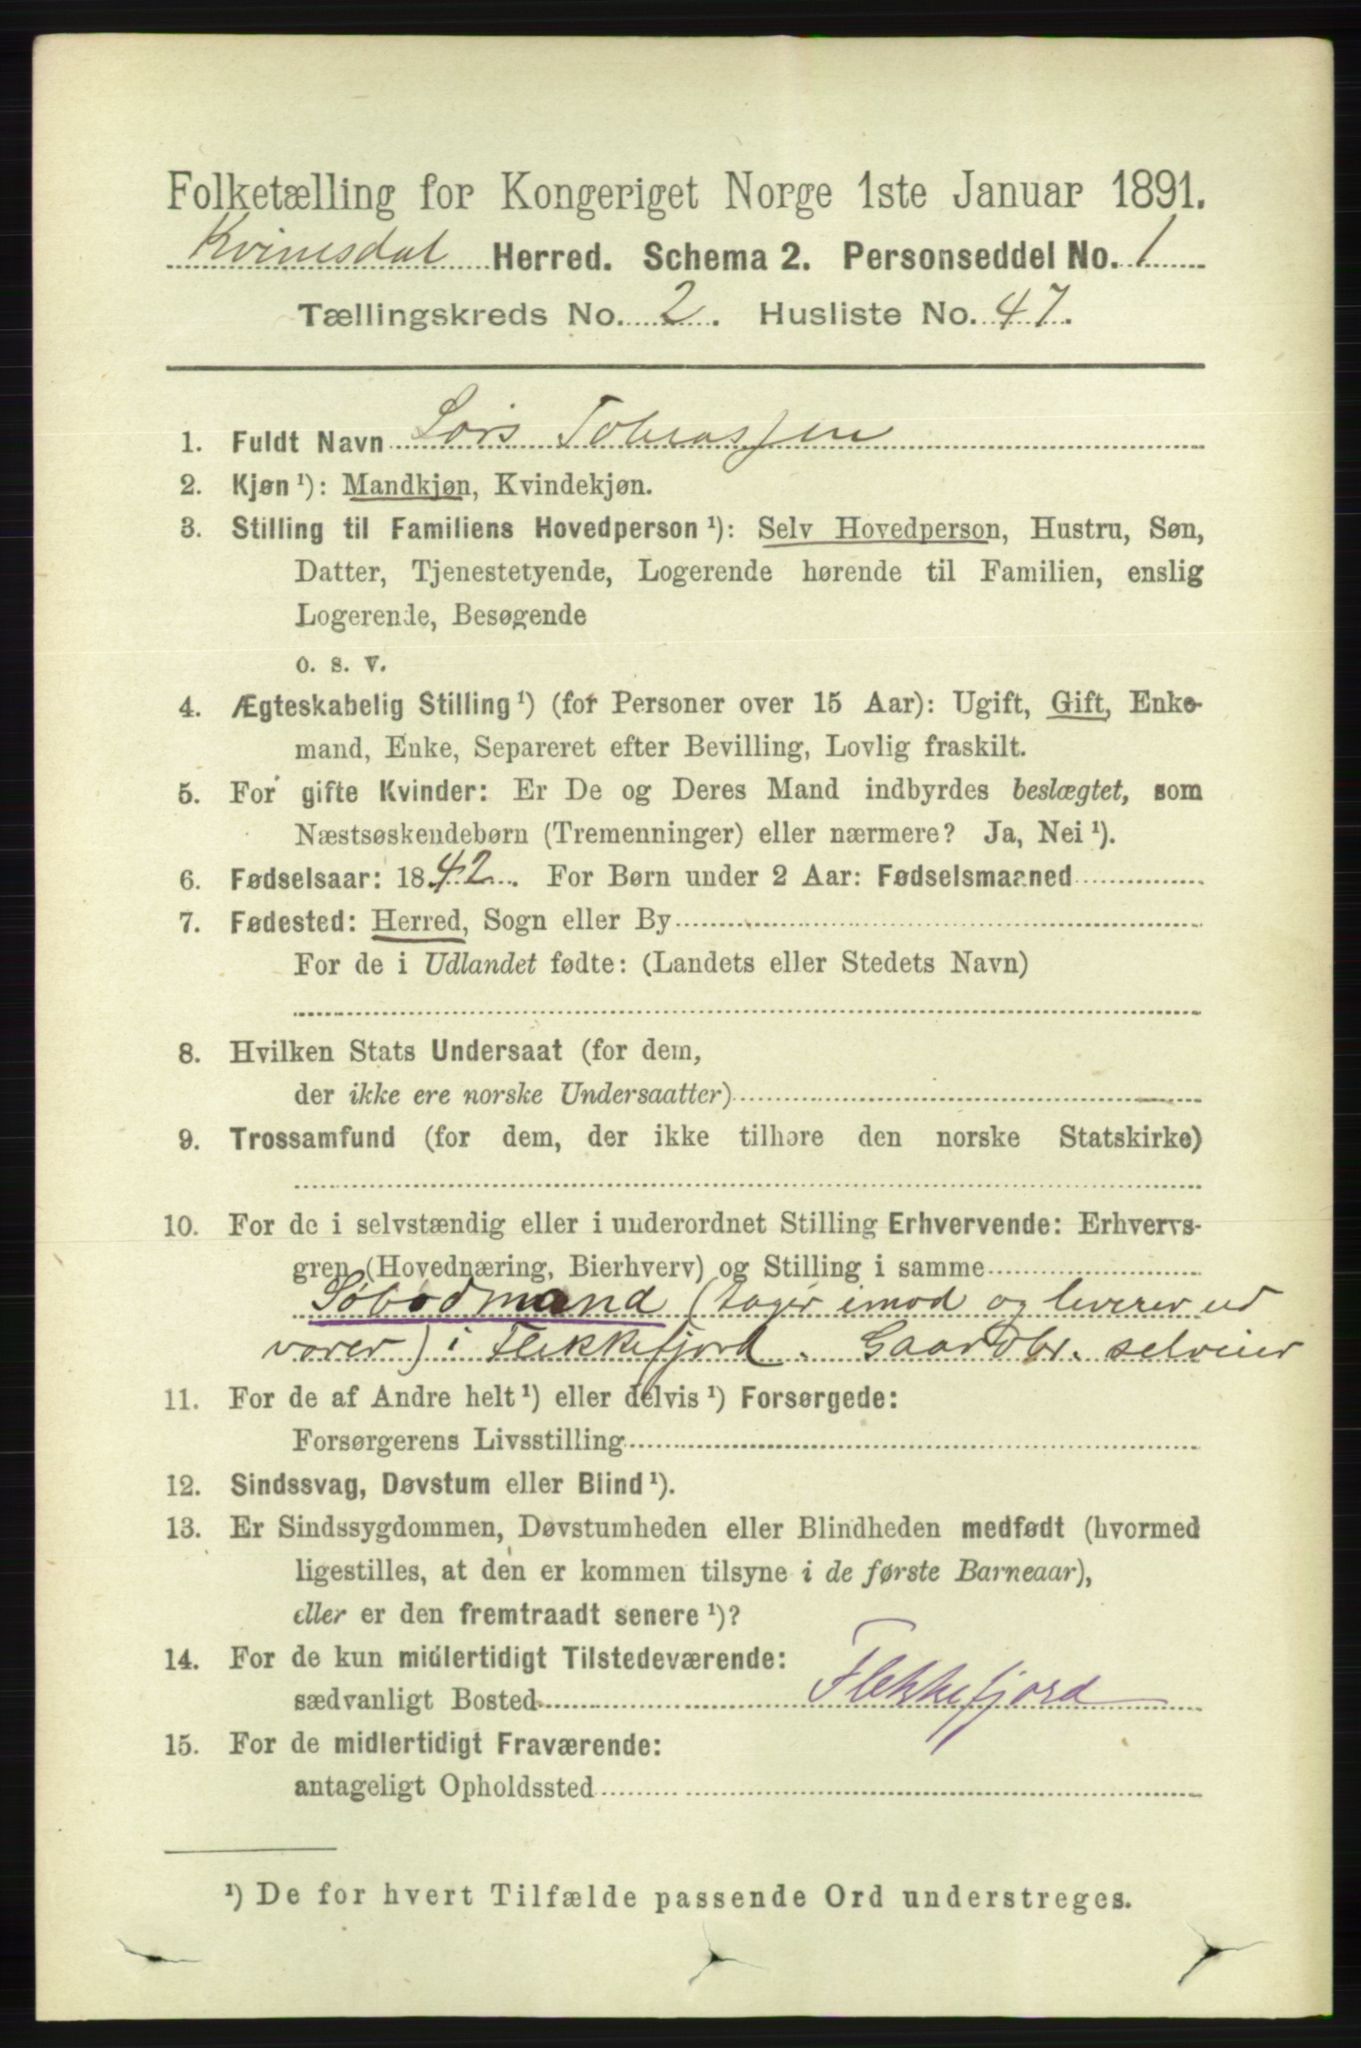 Folketælling for Kongeriget Norge 1ste Januar 1891.
Kvinesdal Herred. Schema 2. Personseddel No. 1
Tællingskreds No. 2. Husliste No. 47.
1. Fuldt Navn Lars Tobiassen
2. Kjøn ¹): Mandkjøn, Kvindekjøn.
3. Stilling til Familiens Hovedperson ¹): Selv Hovedperson, Hustru, Søn,
Datter, Tjenestetyende, Logerende hørende til Familien, enslig
Logerende, Besøgende
o. s. v.
4. Ægteskabelig Stilling ¹) (for Personer over 15 Aar): Ugift, Gift, Enke-
mand, Enke, Separeret efter Bevilling, Lovlig fraskilt.
5. For gifte Kvinder: Er De og Deres Mand indbyrdes beslægtet, som
Næstsøskendebørn (Tremenninger) eller nærmere? Ja, Nei ¹).
6. Fødselsaar: 1842. For Børn under 2 Aar: Fødselsmaaned
7. Fødested: Herred, Sogn eller By
For de i Udlandet fødte: (Landets eller Stedets Navn)
8. Hvilken Stats Undersaat (for dem,
der ikke ere norske Undersaatter)
9. Trossamfund (for dem, der ikke tilhøre den norske Statskirke)
10. For de i selvstændig eller i underordnet Stilling Erhvervende: Erhvervs-
gren (Hovednæring, Bierhverv) og Stilling i samme
Søbodmand (tager imod og leverer ud
varer) i Flekkefjord. Gaardbr. selveier
11. For de af Andre helt ¹) eller delvis ¹) Forsørgede:
Forsørgerens Livsstilling
12. Sindssvag, Døvstum eller Blind ¹).
13. Er Sindssygdommen, Døvstumheden eller Blindheden medfødt (hvormed
ligestilles, at den er kommen tilsyne i de første Barneaar),
eller er den fremtraadt senere ¹)?
14. For de kun midlertidigt Tilstedeværende:
sædvanligt Bosted Flekkefjord
15. For de midlertidigt Fraværende:
antageligt Opholdssted
¹) De for hvert Tilfælde passende Ord understreges.